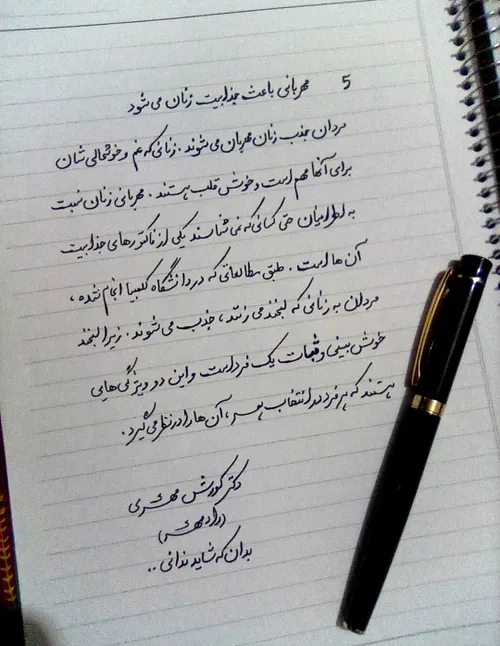 5 مهربانی باعث جذابیت زنان می‌شود
مردان جذب زنان مهربان می‌شوند. زنانی که غم و خوشحالی شان
برای آنها مهم است و خوش قلب هستند. مهربانی زنان نسبت
به اطرافیان حتی کسانی که نمی‌شناسند یکی از فاکتورهای جذابیت
آن ها است. طبق مطالعاتی که در دانشگاه کلمبیا انجام شده،
مردان به زنانی که لبخند می‌زنند، جذب می‌شوند. زیرا لبخند
خوش بینی و ثبات یک فرد است و این دو ویژگی‌هایی
هستند که هر فرد در انتخاب همسر، آن ها را در نظر می‌گیرد.
دکتر کورش
(رادمهر)
بدان که شاید ندانی ..